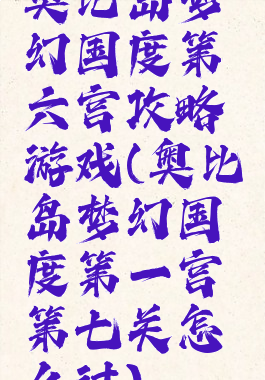 奥比岛梦
幻国度第
六宫攻略
游戏(奥比
岛梦幻国
度第一宫
第七关怎
么过)